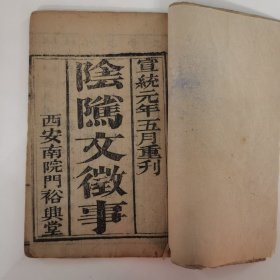 宣統元年五月重刊
陰隲文徵事
西安南院門裕興堂